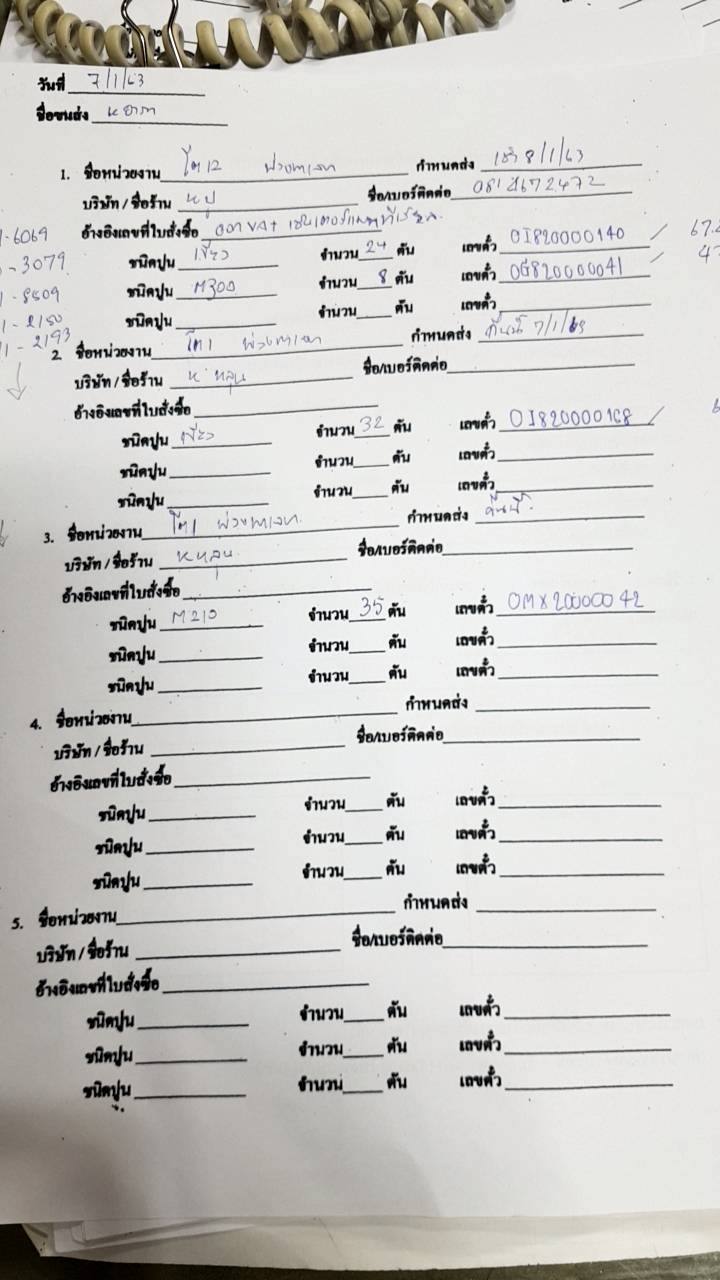 วันที่ 7/1/63
ชื่อขนส่ง
1. ชื่อหน่วยงาน พ่วงพาเลท กำหนดส่ง เช้า 8/1/63
บริษัท / ชื่อร้าน หปู ชื่อ/เบอร์ติดต่อ
อ้างอิงเลขที่ใบสั่งซื้อ ออก VAT
-6069
ชนิดปูน เขียว จำนวน 24 ตัน เลขตั๋ว OI820000140
-3079
ชนิดปูน M300 จำนวน 8 ตัน เลขตั๋ว OG820000041
-8509
ชนิดปูน จำนวน ตัน เลขตั๋ว
-2150
-2193
2 ชื่อหน่วยงาน พ่วงพาเลท กำหนดส่ง คืนนี้ 7/1/63
บริษัท / ชื่อร้าน ห หลุน ชื่อ/เบอร์ติดต่อ
อ้างอิงเลขที่ใบสั่งซื้อ
ชนิดปูน เขียว จำนวน 32 ตัน เลขตั๋ว OI820000168
ชนิดปูน จำนวน ตัน เลขตั๋ว
ชนิดปูน จำนวน ตัน เลขตั๋ว
3. ชื่อหน่วยงาน พ่วงพาเลท กำหนดส่ง คืนนี้
บริษัท / ชื่อร้าน หหลุน ชื่อ/เบอร์ติดต่อ
อ้างอิงเลขที่ใบสั่งซื้อ
ชนิดปูน M210 จำนวน 35 ตัน เลขตั๋ว OMX20000042
ชนิดปูน จำนวน ตัน เลขตั๋ว
ชนิดปูน จำนวน ตัน เลขตั๋ว
4. ชื่อหน่วยงาน กำหนดส่ง
บริษัท / ชื่อร้าน ชื่อ/เบอร์ติดต่อ
อ้างอิงเลขที่ใบสั่งซื้อ
ชนิดปูน จำนวน ตัน เลขตั๋ว
ชนิดปูน จำนวน ตัน เลขตั๋ว
ชนิดปูน จำนวน ตัน เลขตั๋ว
5. ชื่อหน่วยงาน กำหนดส่ง
บริษัท / ชื่อร้าน ชื่อ/เบอร์ติดต่อ
อ้างอิงเลขที่ใบสั่งซื้อ
ชนิดปูน จำนวน ตัน เลขตั๋ว
ชนิดปูน จำนวน ตัน เลขตั๋ว
ชนิดปูน จำนวน ตัน เลขตั๋ว